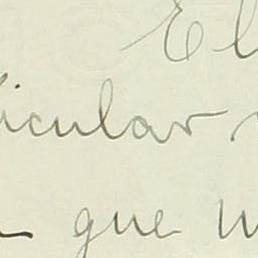 El
icular
que